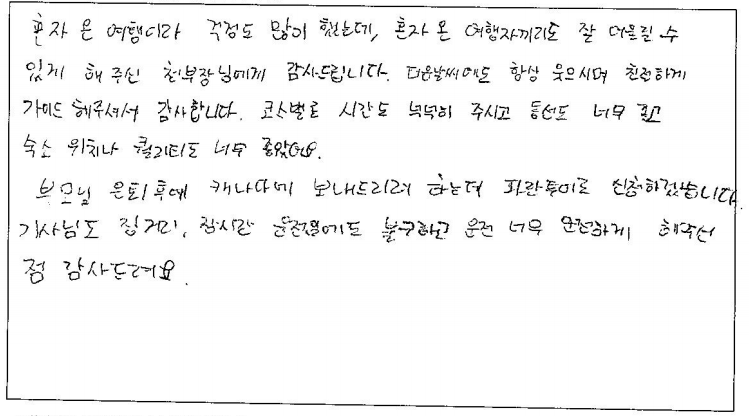 혼자 온 여행이라 걱정도 많이 했는데, 혼자 온 여행자끼리도 잘 어울릴 수
있게 해 주신 천부장님에게 감사드립니다. 더운날씨에도 항상 웃으시며 친절하게
가이드 해주셔서 감사합니다. 코스별로 시간도 넉넉히 주시고 동선도 너무 좋고
숙소 위치나 퀄리티도 너무 좋았어요.
부모님 은퇴 후에 캐나다에 보내드리려 하는데 파란투어로 신청하겠습니다.
기사님도 장거리, 장시간 운전임에도 불구하고 운전 너무 안전하게 해주신
점 감사드려요.